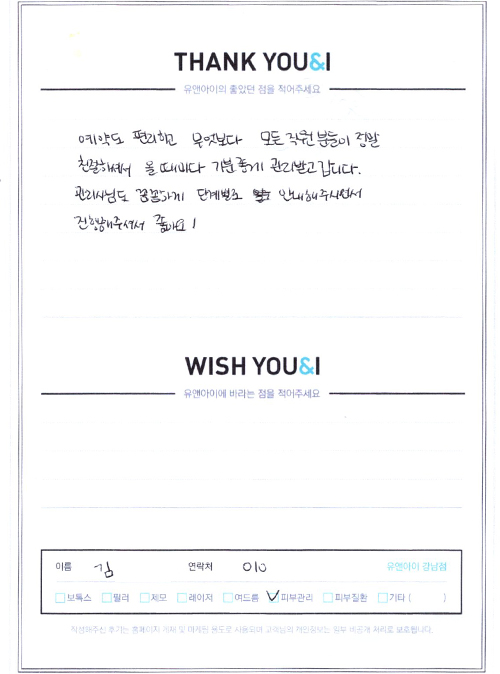 THANK YOU&I
유앤아이의 좋았던 점을 적어주세요
예약도 편리하고 무엇보다 모든 직원분들이 정말
친절하셔서 올 때마다 기분좋게 관리받고 갑니다.
관리사님도 꼼꼼하게 단계별로 안내해주시면서
진행해주셔서 좋아요!
WISH YOU&I
유앤아이에 바라는 점을 적어주세요
이름 김 연락처 010 유앤아이 강남점
보톡스 필러 제모 레이저 여드름 피부관리 피부질환 기타 ( )
작성해주신 후기는 홈페이지 게재 및 마케팅 용도로 사용되며 고객님의 개인정보는 일부 비공개 처리로 보호됩니다.